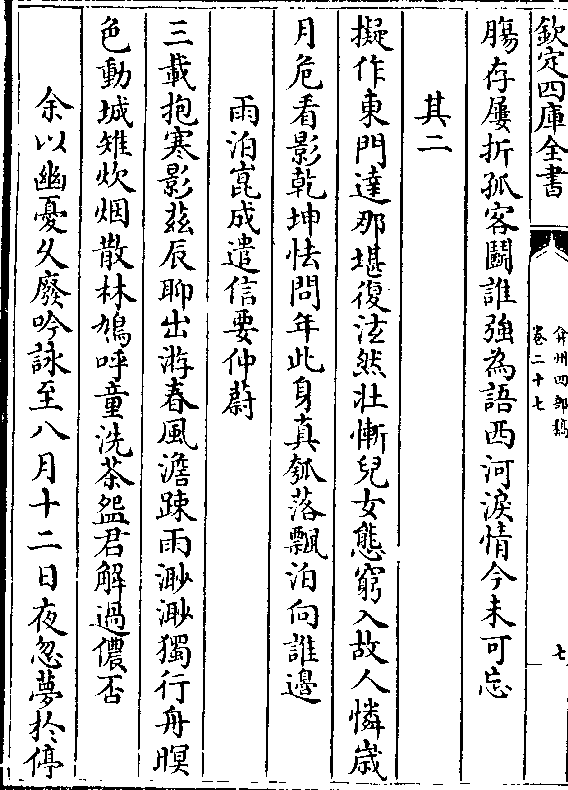 欽定四庫全書
弇州四部稿
卷二十七
七
腸存屢折孤客鬬誰強為語西河淚情今未可忘
其二
擬作東門達那堪復泫然壯慚兒女態窮入故人憐歳
月危看影乾坤怯問年此身真瓠落飄泊向誰邊
雨泊崑成遣信要仲蔚
三載抱寒影茲辰聊出游春風澹踈雨渺渺獨行舟暝
色動城雉炊烟散林鳩呼童洗茶盌君解過儂否
余以幽憂久廢吟詠至八月十二日夜忽夢扵停